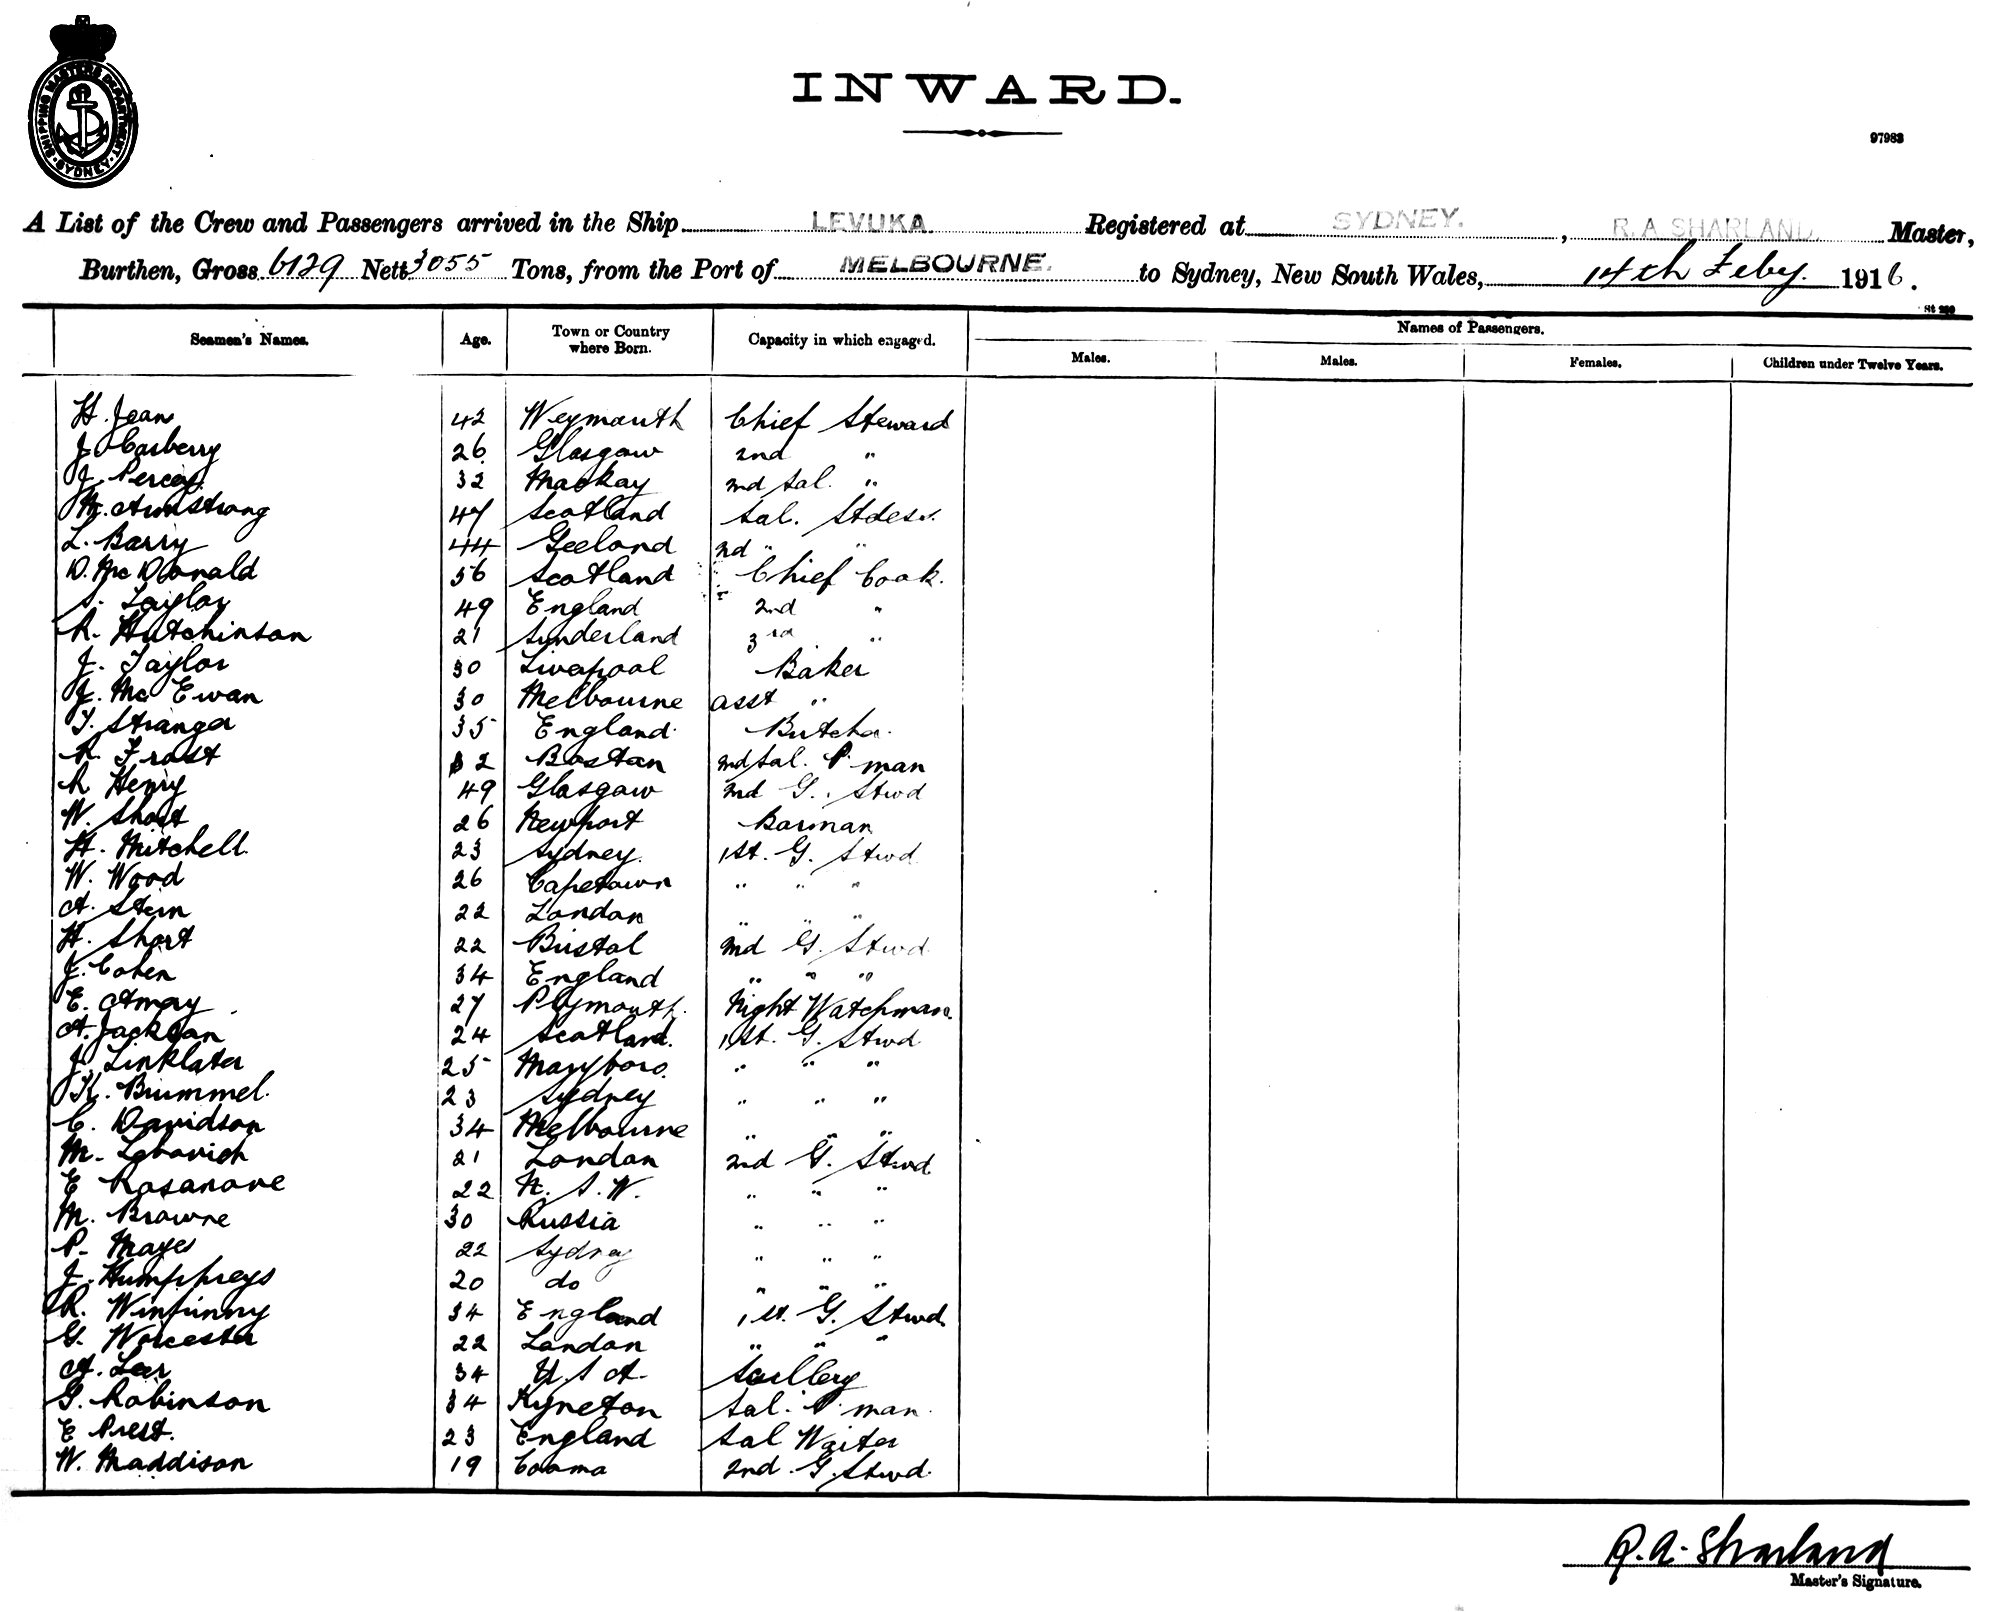 SHIPPING MASTERS DEPARTMENT · SYDNEY ·
INWARD.
97983
A List of the Crew and Passengers arrived in the Ship LEVUKA. Registered at SYDNEY. , R. A SHARLAND. Master,
Burthen, Gross 6129 Nett 3055 Tons, from the Port of MELBOURNE. to Sydney, New South Wales, 14th Feby. 1916.
Seamen's Names. Age. Town or Country where Born. Capacity in which engaged. Names of Passengers.
Males. Males. Females. Children under Twelve Years.
H. Jean 42 Weymouth Chief Steward
J. Carberry 26 Glasgow 2nd "
J. Percy 32 Mackay 2nd Sal. "
M. Armstrong 47 Scotland Sal. Stdess.
L. Barry 44 Geelond 2nd " "
D. McDonald 56 Scotland Chief Cook.
S. Taylor 49 England 2nd "
R. Hutchinson 21 Sunderland 3rd "
J. Taylor 30 Liverpool Baker
J. McEwan 30 Melbourne asst "
T. Stranger 35 England. Butcher.
R. Frost 32 Boston 2nd Sal. P. man
R Henry 49 Glasgow 2nd G. Stwd
W. Short 26 Newport Barman
H. Mitchell. 23 Sydney. 1st. G. Stwd
W. Wood 26 Capetown " " "
A. Stein 22 London " " "
H. Short 22 Bristol 2nd G. Stwd
J. Cohen 34 England " " "
E. Amery 27 Plymouth. Night Watchman.
A. Jackson 24 Scotland. 1st. G. Stwd
J. Linklater 25 Maryboro. " " "
K. Brummel. 23 Sydney " " "
C. Davidson 34 Melbourne " " "
M. Lebovich 21 London 2nd G. Stwd
E Rosanove 22 N. S. W. " " "
M. Browne 30 Russia " " "
P. Mayes 22 Sydney " " "
J. Humphreys 20 do " " "
R. Winpinny 34 England 1st. G. Stwd.
G. Worcester 22 London " " "
A. Lear 34 U.S A. Scullery
G. Robinson 34 Kyneton Sal. P. man.
E Prest. 23 England Sal Waiter
W. Maddison 19 Cooma 2nd. G. Stwd.
R. A. Sharland
Master's Signature.